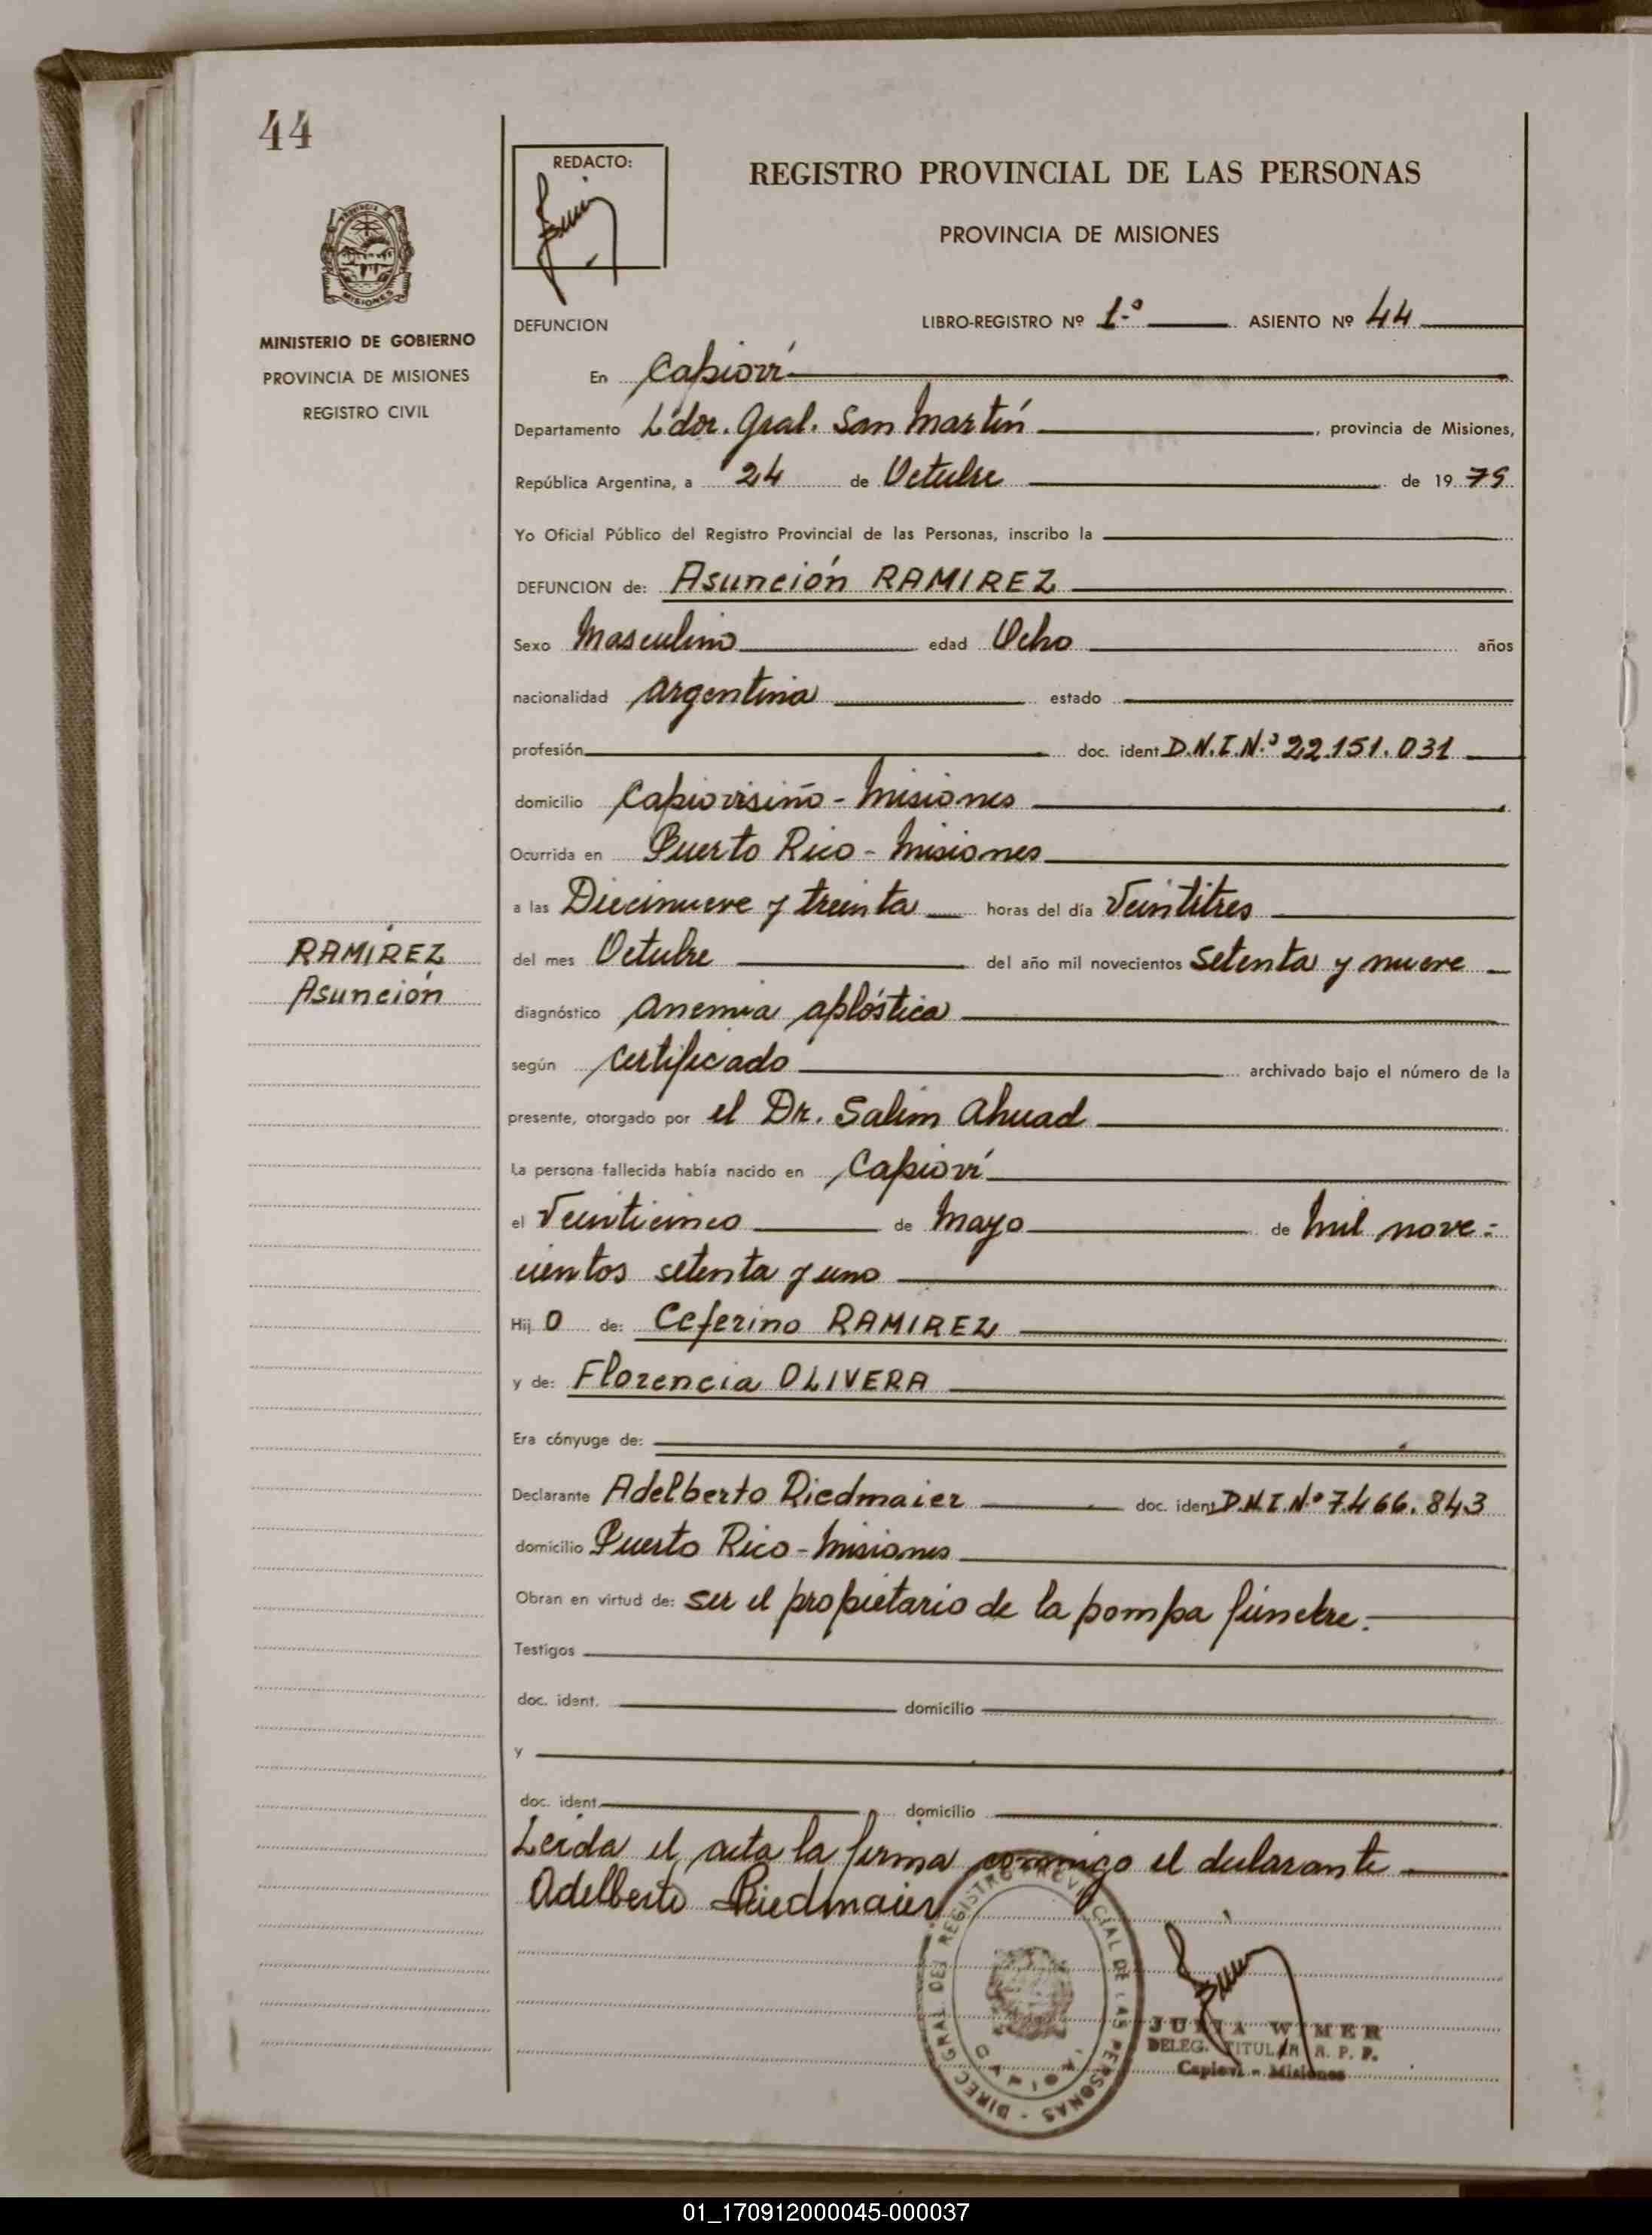 44
REDACTO:
REGISTRO PROVINCIAL DE LAS PERSONAS
PROVINCIA DE MISIONES
MISIONES
MINISTERIO DE GOBIERNO
PROVINCIA DE MISIONES
REGISTRO CIVIL
DEFUNCION
LIBRO-REGISTRO Nº 1.º ASIENTO Nº 44
En Capioví
Departamento L'dor. Gral. San Martín, provincia de Misiones,
República Argentina, a 24 de Octubre de 1979
Yo Oficial Público del Registro Provincial de las Personas, inscribo la
DEFUNCION de: Asunción RAMIREZ
Sexo Masculino edad Ocho años
nacionalidad argentina estado
profesión doc. ident D.N.I.N.º 22.151.031
domicilio Capiovisiño - Misiones
Ocurrida en Puerto Rico - Misiones
a las Diecinueve y treinta horas del día Veintitres
del mes Octubre del año mil novecientos setenta y nueve
RAMIREZ
Asunción
diagnóstico anemia aplóstica
según certificado archivado bajo el número de la
presente, otorgado por el Dr. Salim Ahuad
La persona fallecida había nacido en Capioví
el Veinticinco de Mayo de mil nove-
cientos setenta y uno
Hij o de: Ceferino RAMIREZ
y de: Florencia OLIVERA
Era cónyuge de:
Declarante Adelberto Riedmaier doc. ident D.N.I.Nº 7.466.843
domicilio Puerto Rico - Misiones
Obran en virtud de: ser el propietario de la pompa fúnebre.
Testigos
doc. ident. domicilio
y
doc. ident. domicilio
Leída el acta la firma conmigo el declarante
Adelberto Riedmaier
DIREC. GRAL. DEL REGISTRO PROVINCIAL DE LAS PERSONAS
CAPIOVI
JULIA WIMER
DELEG. TITULAR R. P. P.
Capioví - Misiones
01_170912000045-000037